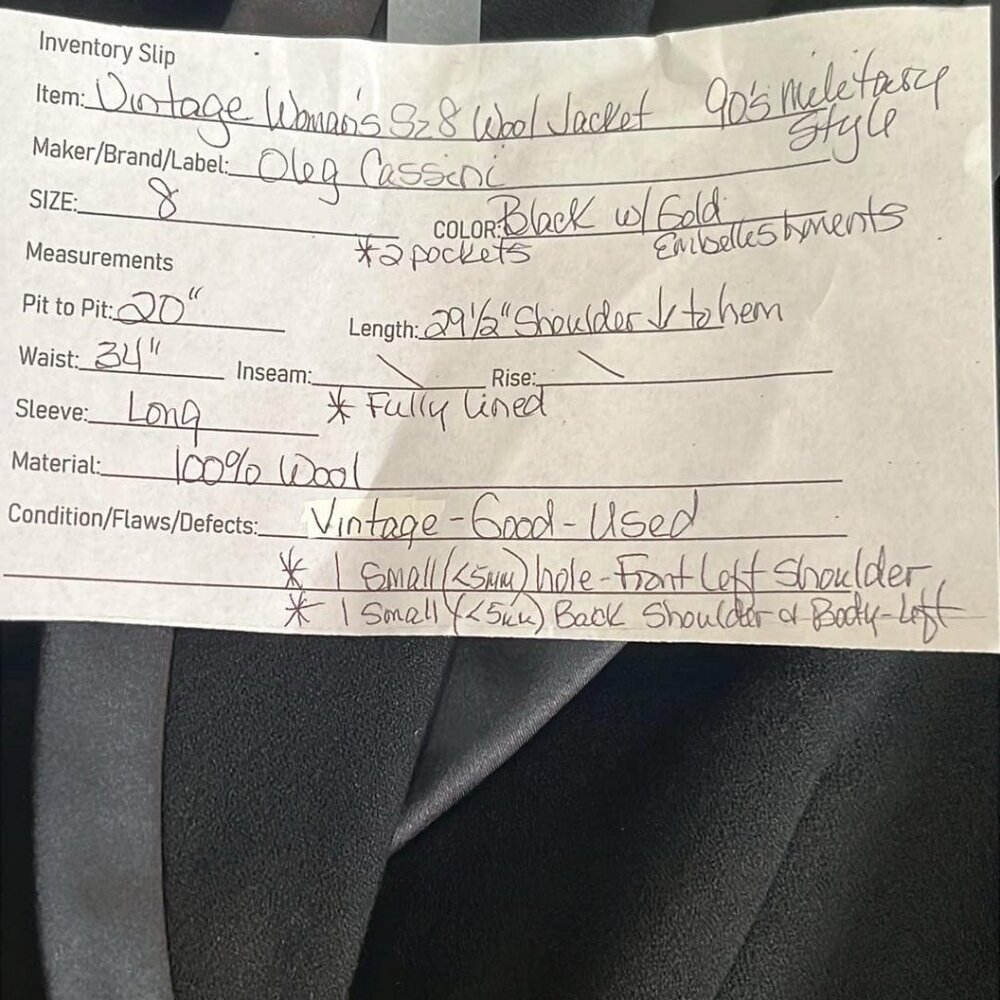 Inventory Slip
Item: Vintage Woman's Sz 8 Wool Jacket 90's Miletary
Style
Maker/Brand/Label: Oleg Cassini
SIZE: 8 COLOR: Black w/ Gold
Embellishments
*2 pockets
Measurements
Pit to Pit: 20" Length: 29 1/2" Shoulder ↓ to hem
Waist: 34" Inseam: \ Rise: \
Sleeve: Long * Fully lined
Material: 100% Wool
Condition/Flaws/Defects: Vintage - Good - Used
* 1 Small (<5mm) hole - Front Left Shoulder
* 1 Small (<5mm) Back Shoulder of Body - Left